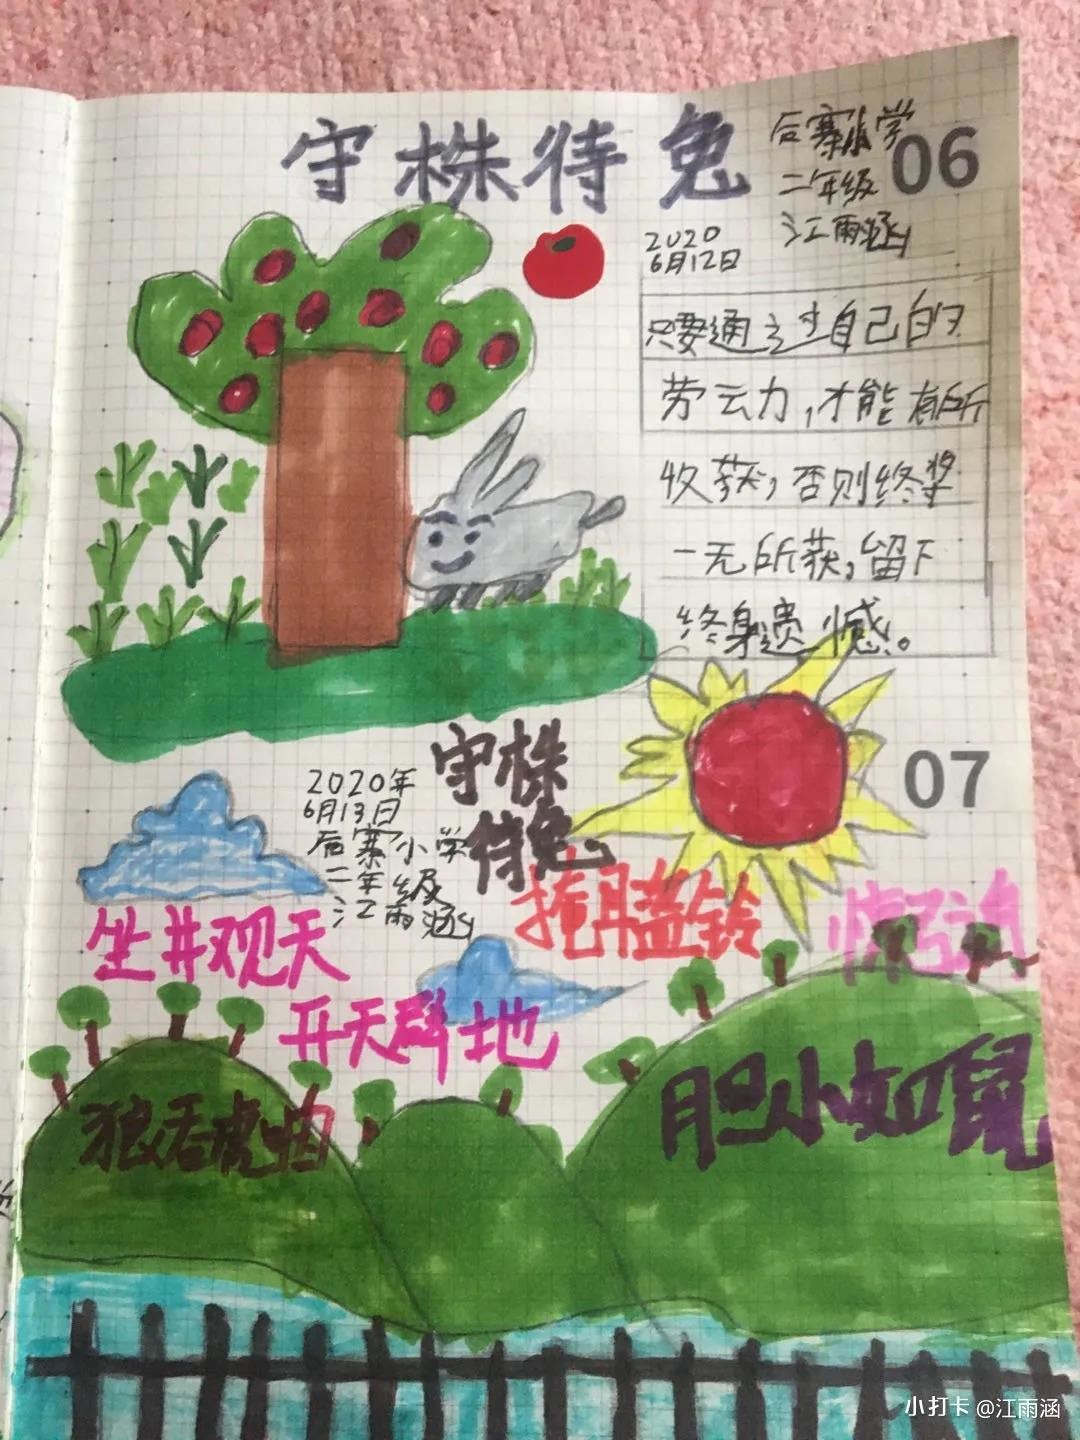 守株待兔
后寨小学
06
二年级
江雨涵
2020
6月12日
只要通过自己的
劳云力,才能有所
收获,否则终将
一无所获,留下
终身遗憾。
守株
待兔
07
2020年
6月13日
后寨小学
二年级
江雨涵
掩耳盗铃
坐井观天
开天辟地
胆小如鼠
狼吞虎咽
小打卡@江雨涵